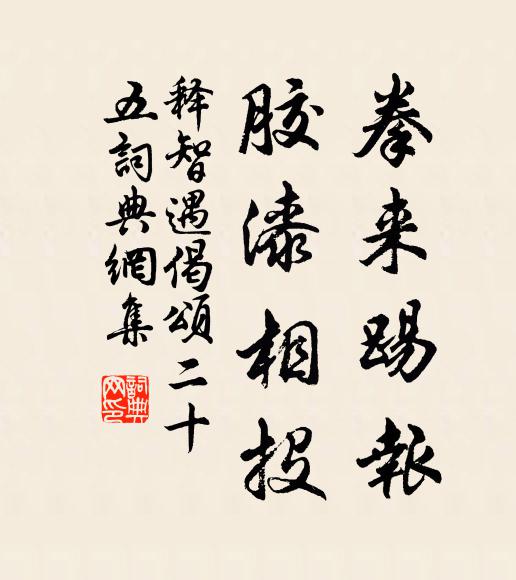 拳来踢報
胶漆相投
释智遇偈頌二十
五詞典網集
詞典
网印